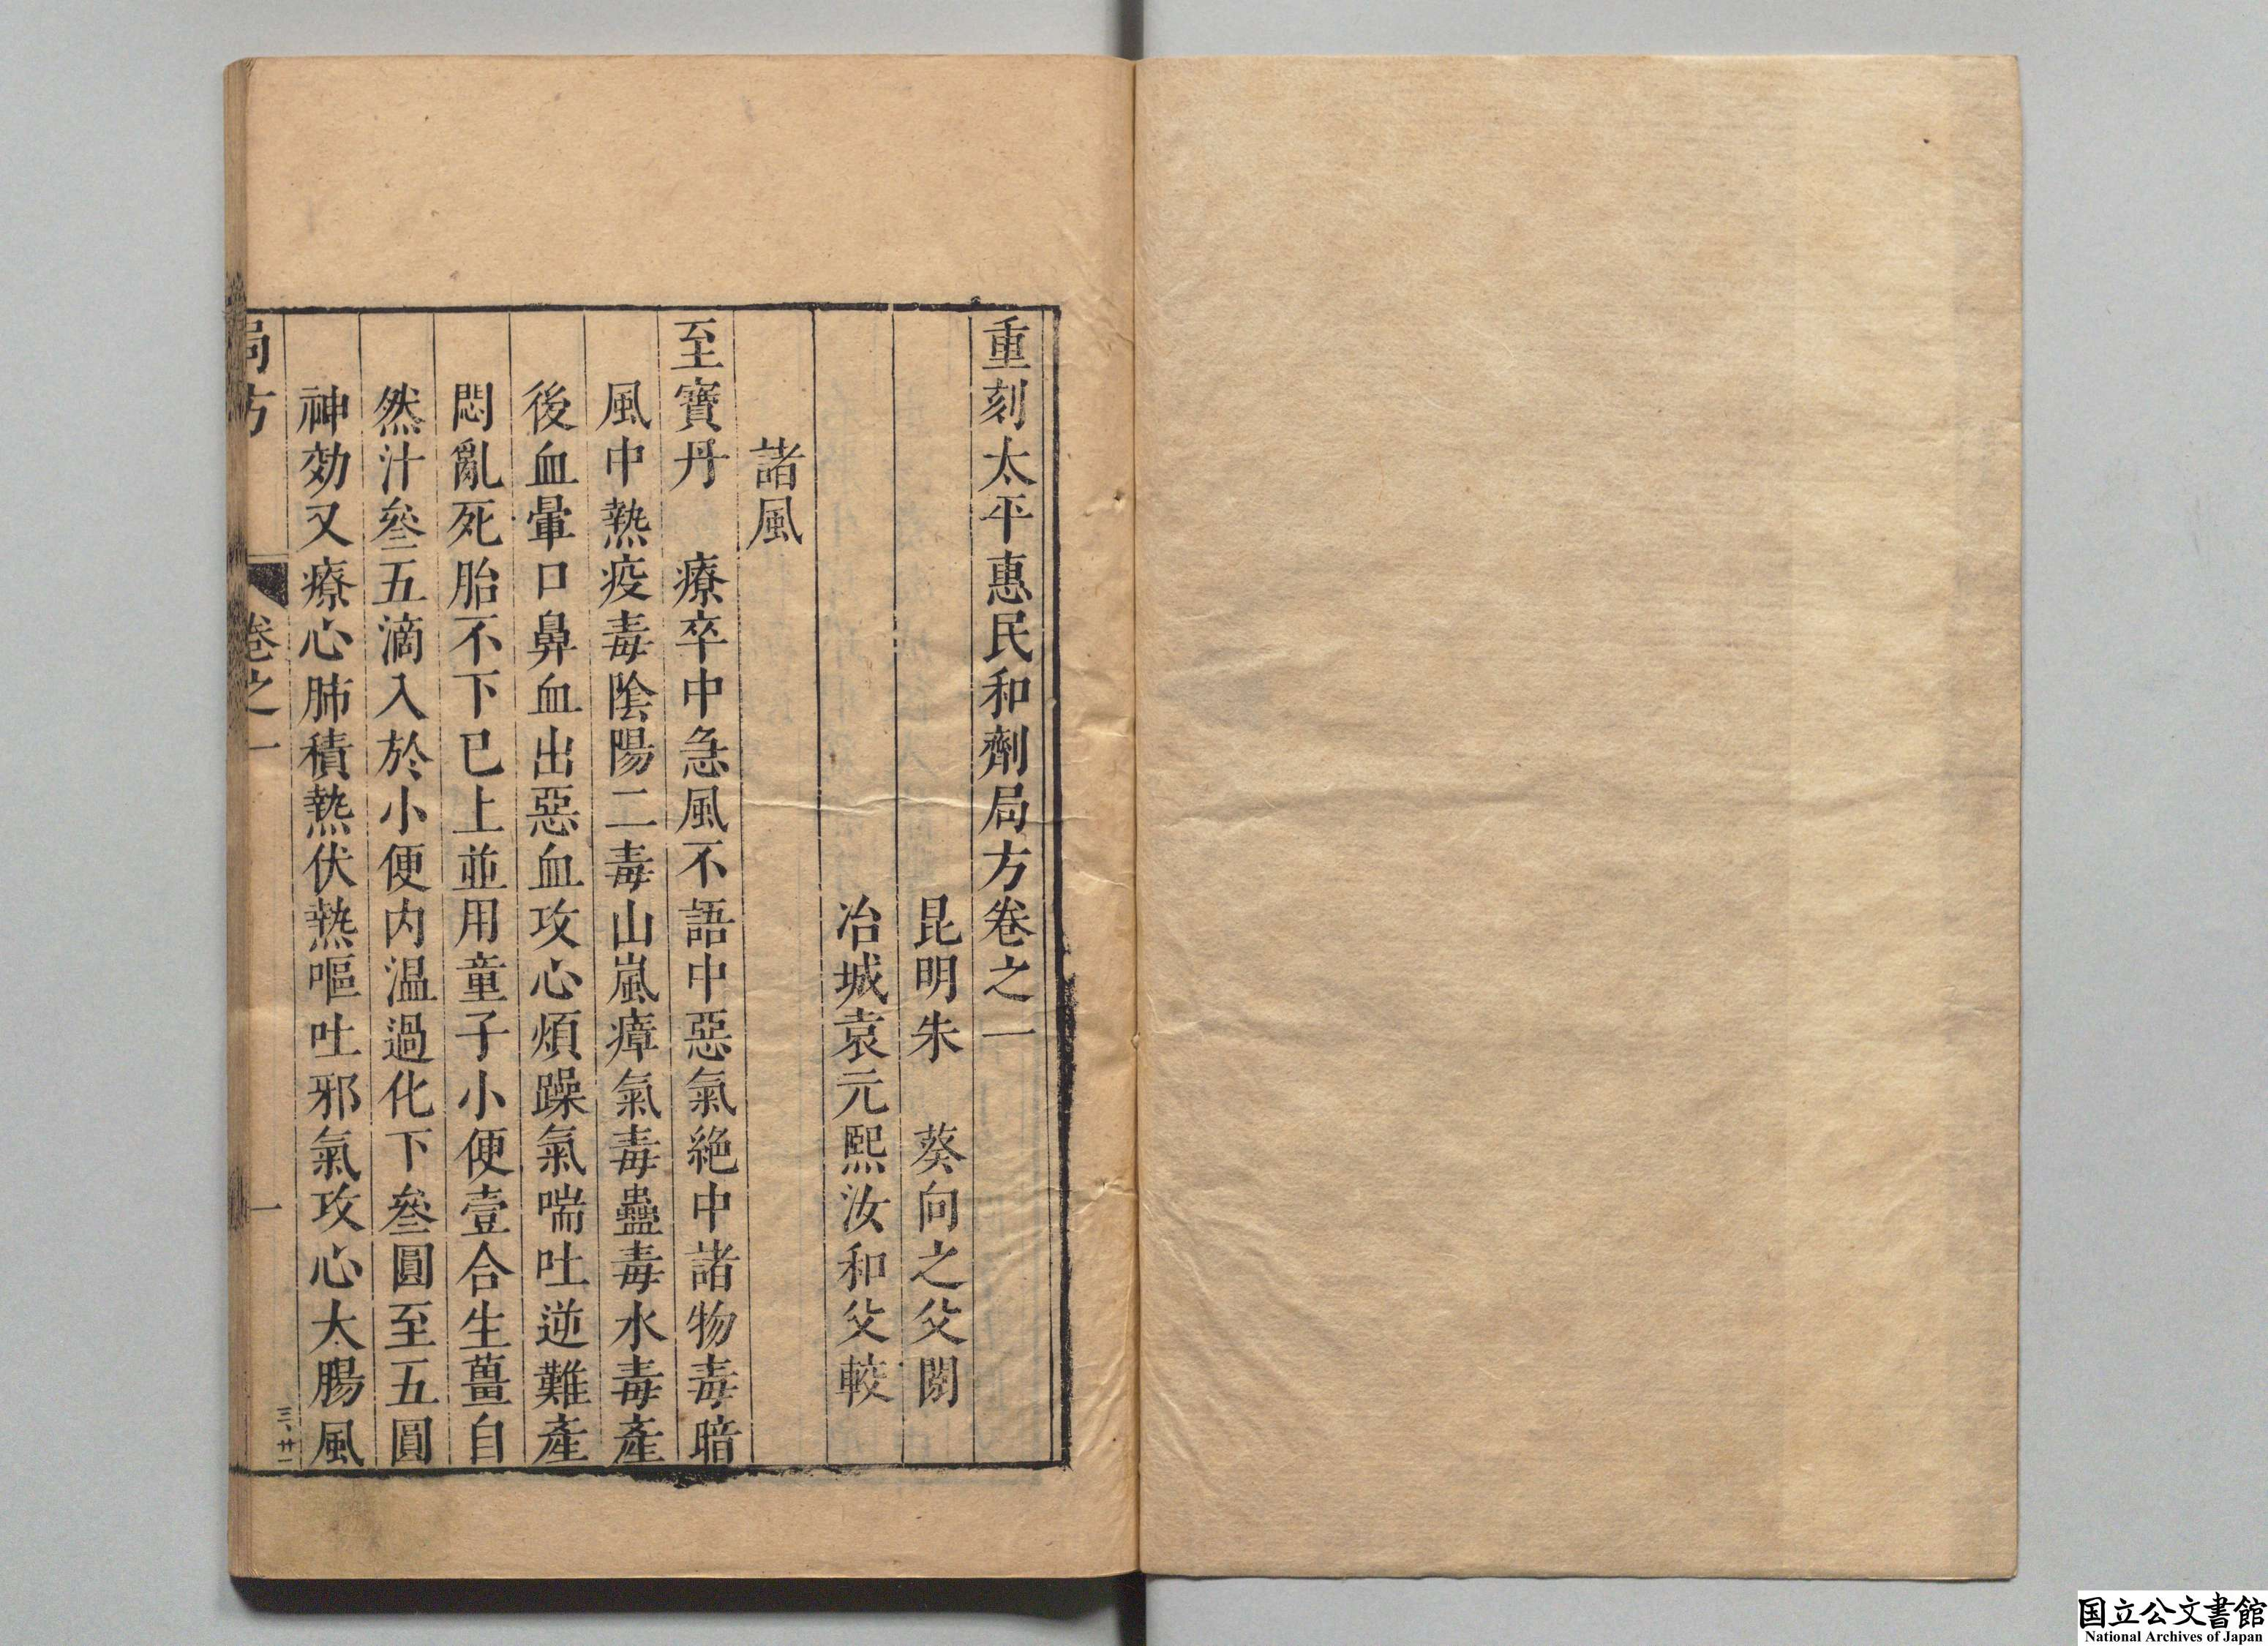 重刻太平惠民和劑局方卷之一
昆明朱　葵向之父閱
冶城袁元熙汝和父較
諸風
至寶丹　療卒中急風不語中惡氣絶中諸物毒暗
風中熱疫毒陰陽二毒山嵐瘴氣毒蠱毒水毒產
後血暈口鼻血出惡血攻心煩躁氣喘吐逆難產
悶亂死胎不下已上並用童子小便壹合生薑自
然汁叄五滴入於小便内温過化下叄圓至五圓
神効又療心肺積熱伏熱嘔吐邪氣攻心大腸風
局方　卷之一　一
三、廿一
国立公文書館
National Archives of Japan